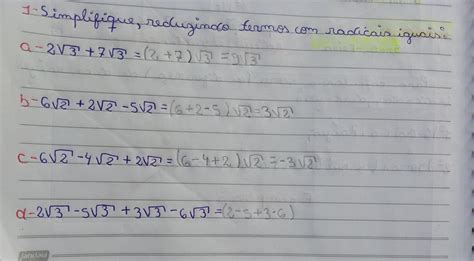 1-Simplifique, reduzindo termos com radicais iguais:
a-2√3 + 7√3 = (2+7)√3 = 9√3
b-6√2 + 2√2 - 5√2 = (6+2-5)√2 = 3√2
c-6√2 - 4√2 + 2√2 = (6-4+2)√2 = -3√2
d-2√3 - 5√3 + 3√3 - 6√3 = (2-5+3-6)